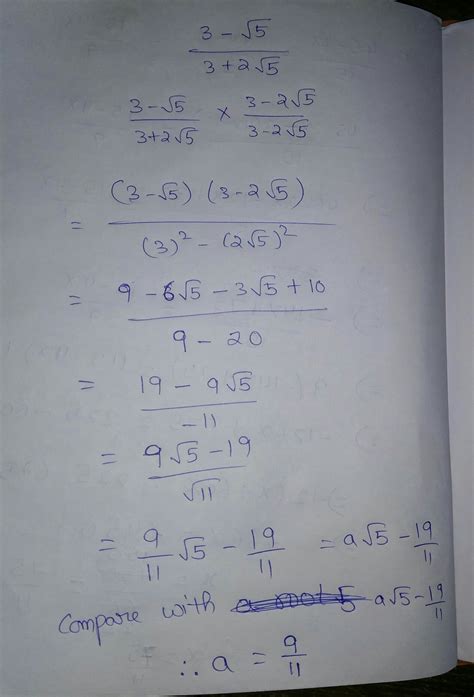 3 - √5 / 3 + 2√5
3 - √5 / 3 + 2√5 × 3 - 2√5 / 3 - 2√5
= (3 - √5) (3 - 2√5) / (3)² - (2√5)²
= 9 - 6√5 - 3√5 + 10 / 9 - 20
= 19 - 9√5 / -11
= 9√5 - 19 / √11
= 9/11 √5 - 19/11 = a√5 - 19/11
Compare with a√5 - 19/11
∴ a = 9/11